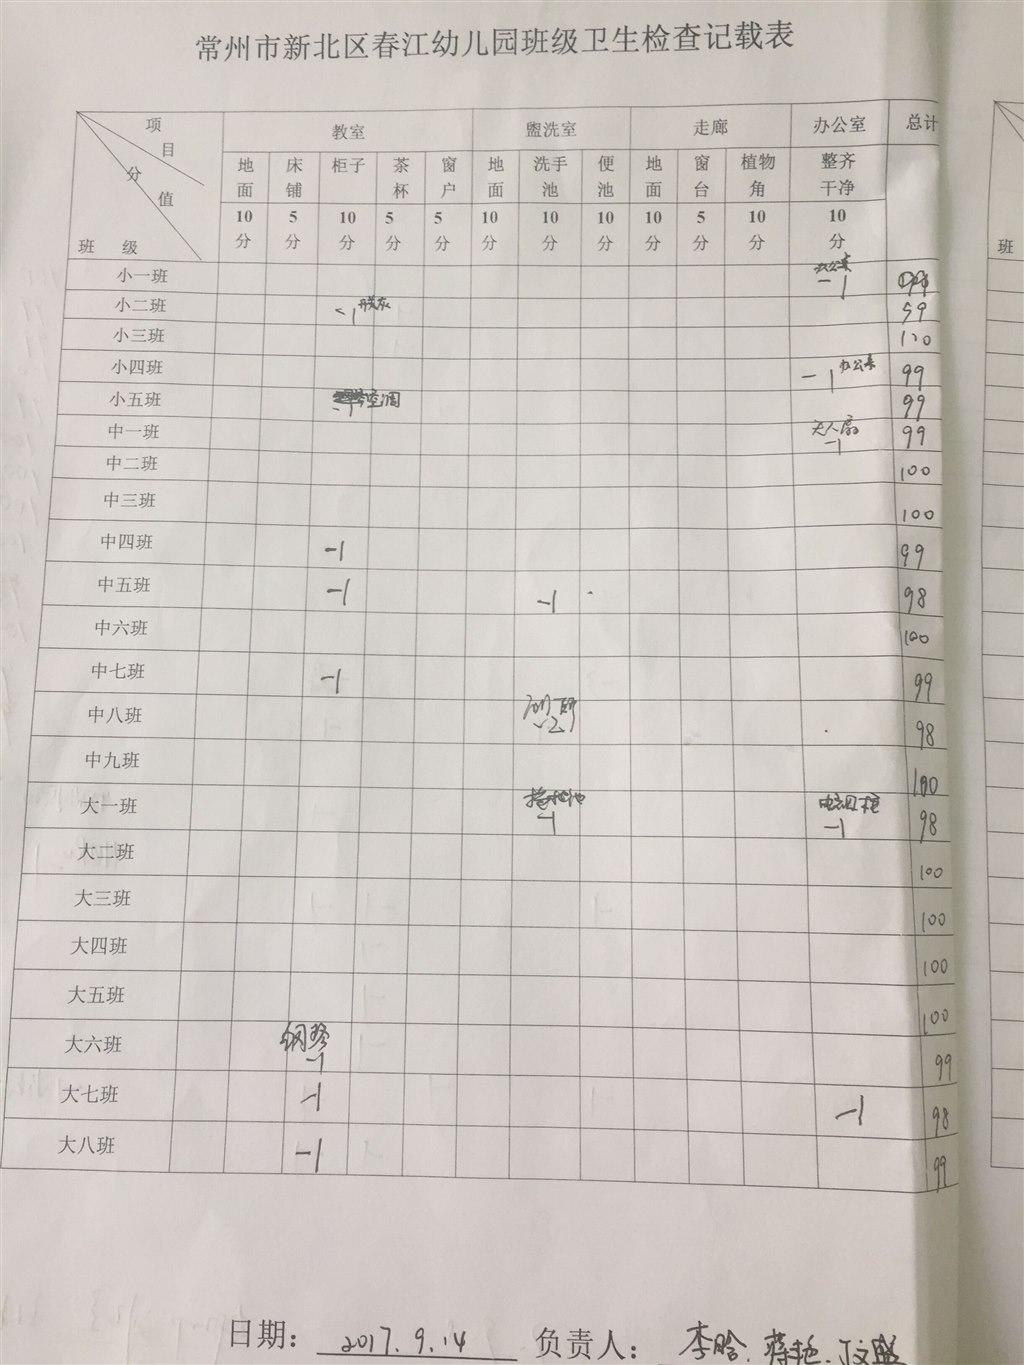 常州市新北区春江幼儿园班级卫生检查记载表
项目 分值 班级 教室 盥洗室 走廊 办公室 总计
地面 床铺 柜子 茶杯 窗户 地面 洗手池 便池 地面 窗台 植物角 整齐干净
10分 5分 10分 5分 5分 10分 10分 10分 10分 5分 10分 10分
小一班 办公桌 -1 99
小二班 -1 99
小三班 100
小四班 -1 办公桌 99
小五班 空调 -1 99
中一班 -1 99
中二班 100
中三班 100
中四班 -1 99
中五班 -1 -1 98
中六班 100
中七班 -1 99
中八班 -2 98
中九班 100
大一班 -1 -1 98
大二班 100
大三班 100
大四班 100
大五班 100
大六班 钢琴 -1 99
大七班 -1 -1 98
大八班 -1 99
班
日期： 2017.9.14 负责人： 李晗.蒋艳.